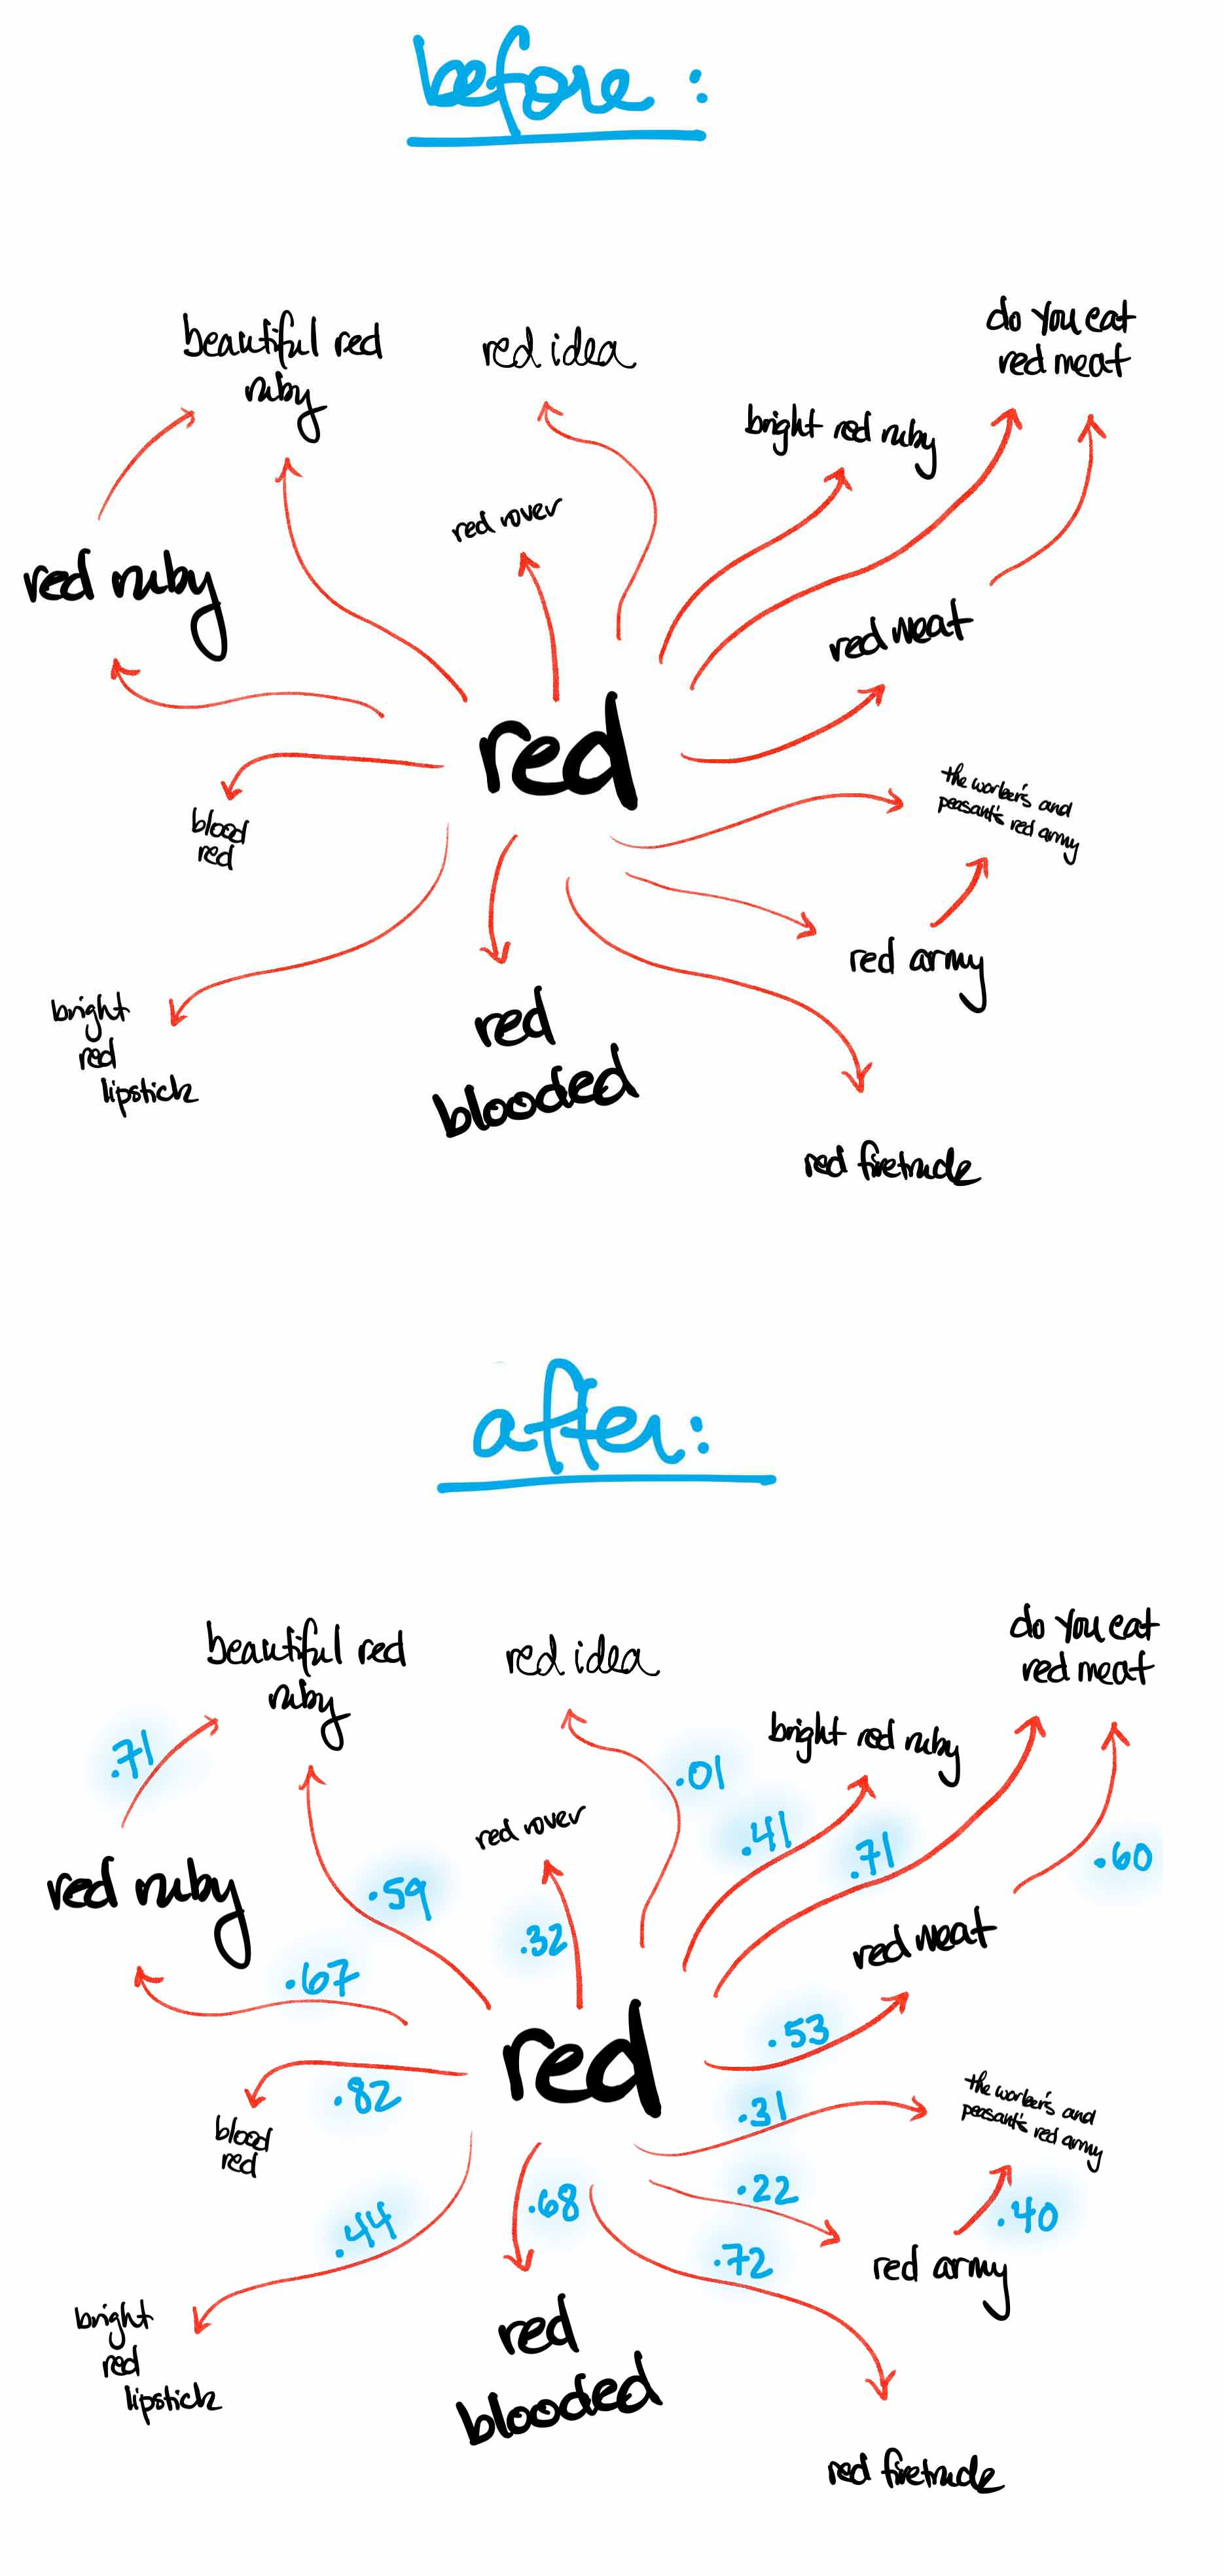 before:
beautiful red
ruby
red idea
do you eat
red meat
bright red ruby
red rover
red ruby
red meat
red
the worker's and
peasant's red army
blood
red
red army
bright
red
lipstick
red
blooded
red firetruck
after:
beautiful red
ruby
red idea
do you eat
red meat
bright red ruby
.71
.01
.41
.71
.60
red rover
red ruby
.59
.32
red meat
.67
red
.53
.82
.31
the worker's and
peasant's red army
blood
red
.44
.68
.22
.40
.72
red army
bright
red
lipstick
red
blooded
red firetruck